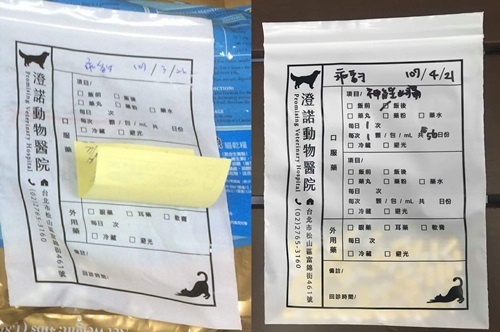 107/3/22
澄諾動物醫院
Promising Veterinary Hospital
台北市松山區富錦街461號
(02)2765-3160
口服藥
項目/
□飯前 □飯後
□藥丸 □藥粉 □藥水
每日 次
每次 顆/包/mL 共 日份
□冷藏 □避光
外用藥
□眼藥 □耳藥 □軟膏
每日 次
□冷藏 □避光
備註/
回診時間/
貓乾糧
107/4/21
澄諾動物醫院
Promising Veterinary Hospital
台北市松山區富錦街461號
(02)2765-3160
口服藥
項目/
□飯前 □飯後
□藥丸 □藥粉 □藥水
每日 1 次
每次 顆/包/mL 共 50 日份
□冷藏 □避光
項目/
□飯前 □飯後
□藥丸 □藥粉 □藥水
每日 次
每次 顆/包/mL 共 日份
□冷藏 □避光
外用藥
□眼藥 □耳藥 □軟膏
每日 次
□冷藏 □避光
備註/
回診時間/